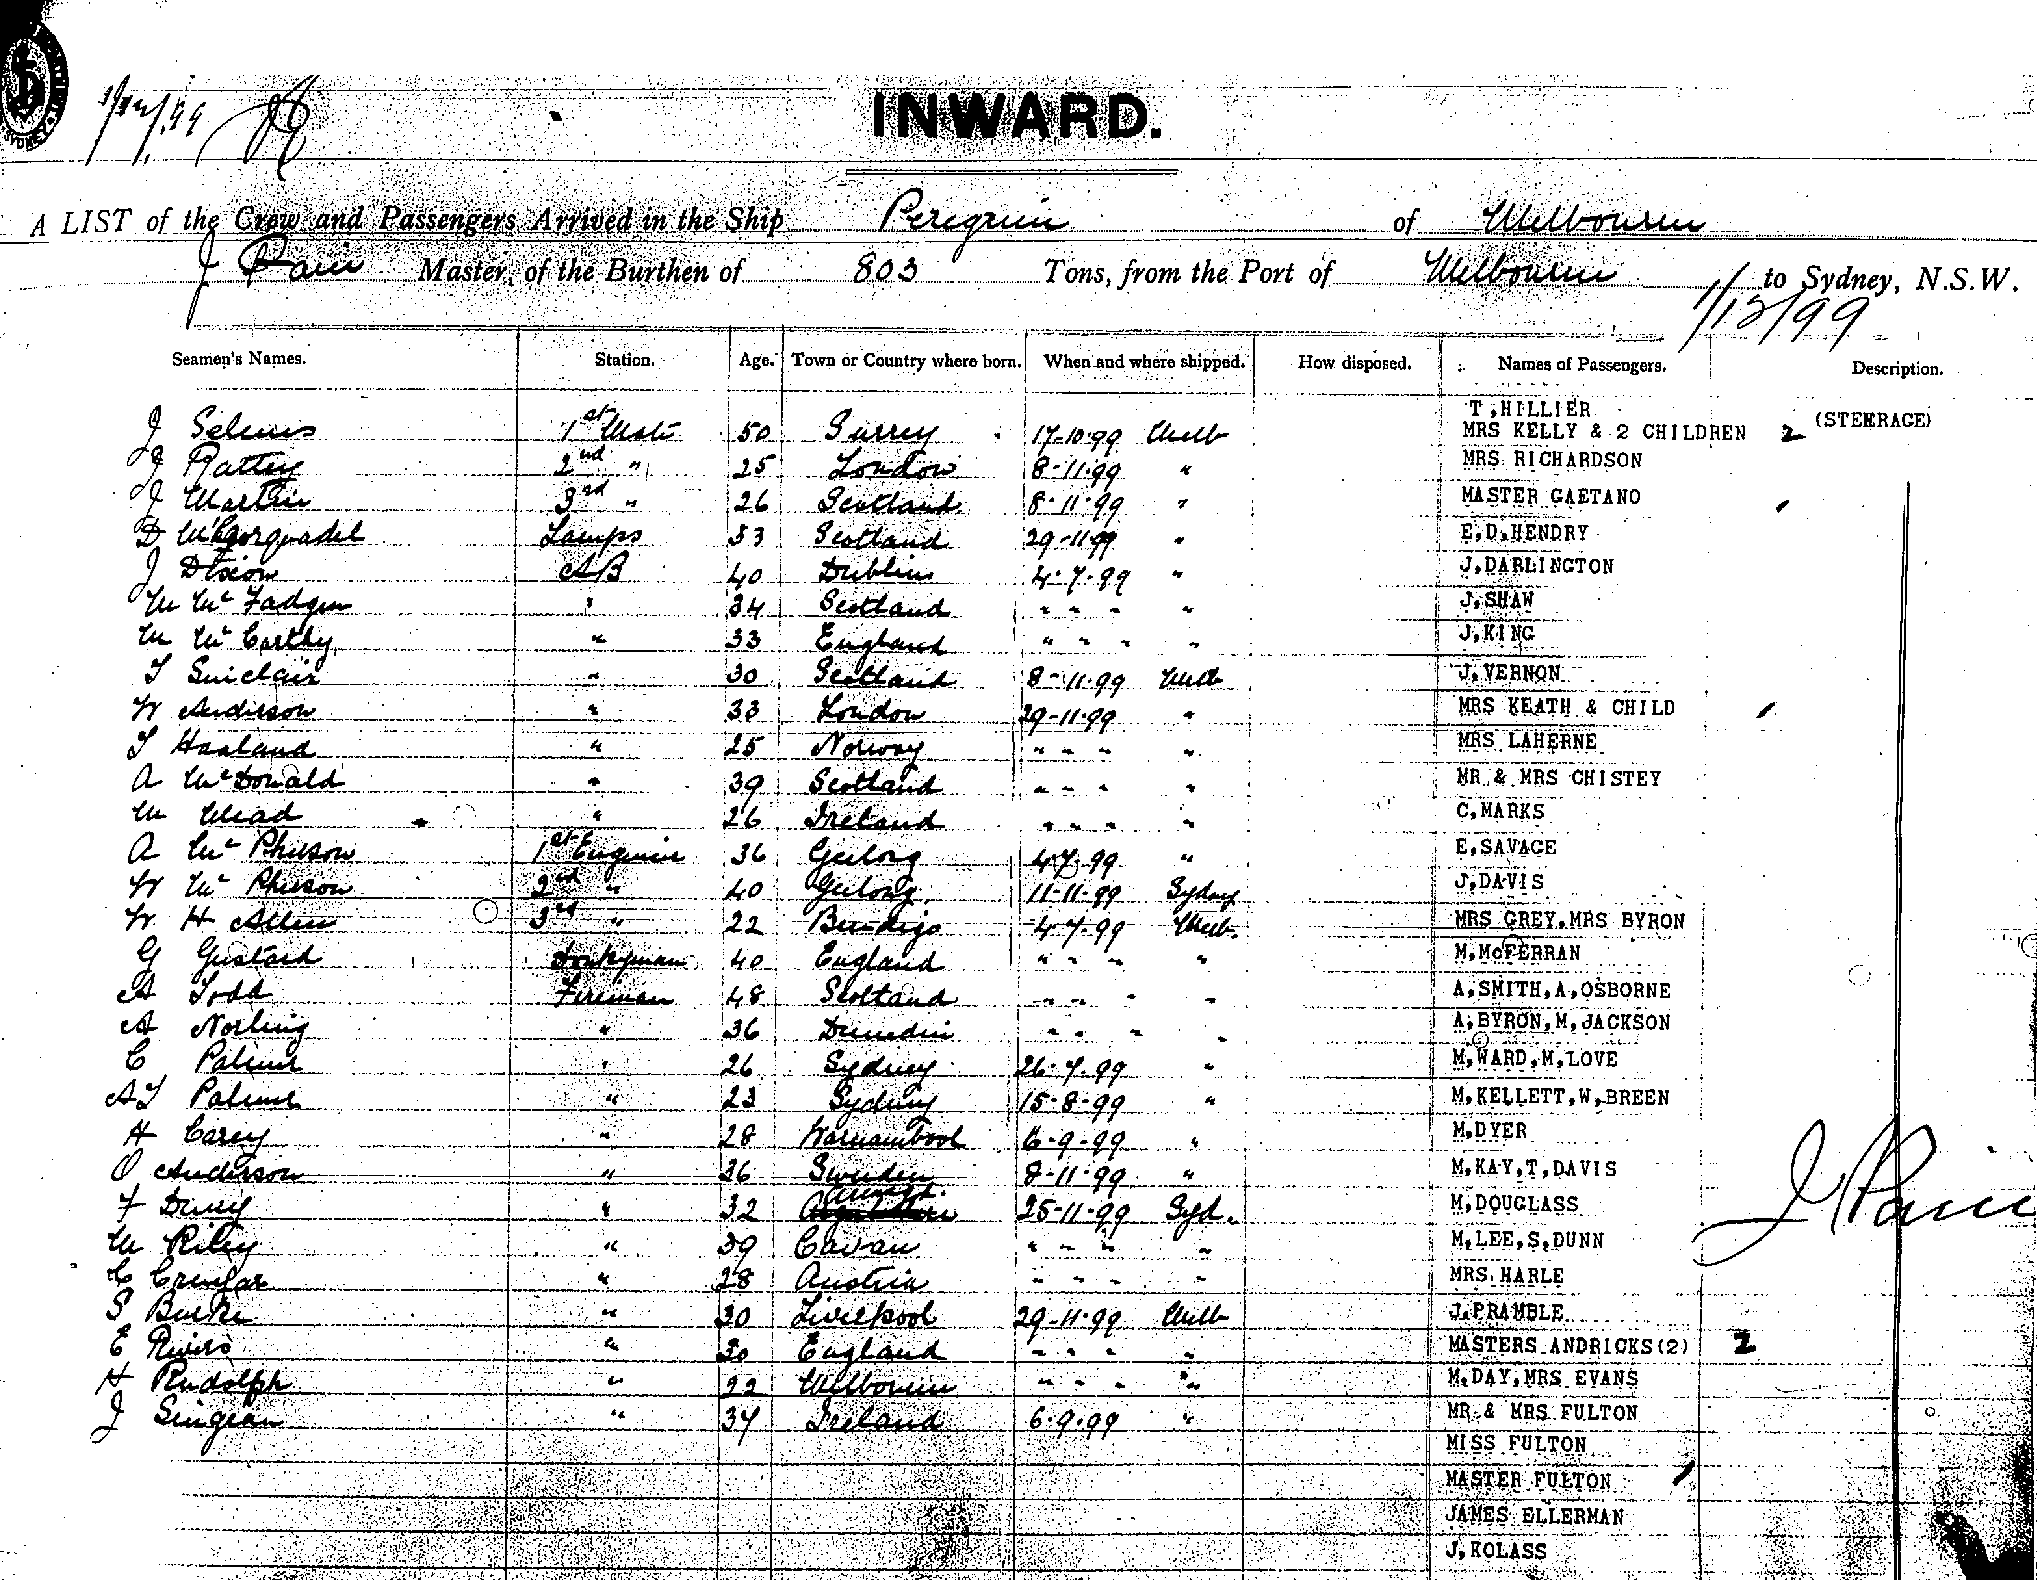 1/12/99
INWARD.
A LIST of the Crew and Passengers Arrived in the Ship Peregrine of Melbourne
J Pain Master, of the Burthen of 803 Tons, from the Port of Melbourne to Sydney, N.S.W.
1/12/99
Seamen's Names. Station. Age. Town or Country where born. When and where shipped. How disposed. Names of Passengers. Description.
T,HILLIER
J 1st Mate 50 Surrey 17-10-99 Melb MRS KELLY & 2 CHILDREN 2 (STEERAGE)
J Rattey 2nd " 25 London 8-11-99 " MRS RICHARDSON
J Martin 3rd " 26 Scotland 8-11-99 " MASTER GAETANO
D Lamps 53 Scotland 29-11-99 " E,D,HENDRY
J Dixon AB 40 Dublin 4-7-99 " J,DARLINGTON
M McFadgen " 34 Scotland " " " " J,SHAW
M McCarthy " 33 England " " " " J,KING
T Sinclair " 30 Scotland 8-11-99 Melb J,VERNON
W Anderson " 33 London 29-11-99 " MRS KEATH & CHILD
T Haaland " 25 Norway " " " " MRS LAHERNE
A McDonald " 39 Scotland " " " " MR & MRS CHISTEY
M Mead " 26 Ireland " " " " C,MARKS
A McPheson 1st Engineer 36 Geelong 4-7-99 " E,SAVAGE
W McPheson 2nd " 40 Geelong 11-11-99 Sydney J,DAVIS
W H Allen 3rd " 22 Bendigo 4-7-99 Melb. MRS GREY,MRS BYRON
G Gustard Donkyman 40 England " " " " M,McFERRAN
A Todd Fireman 48 Scotland " " " " A,SMITH,A,OSBORNE
A Norling " 36 Dunedin " " " " A,BYRON,M,JACKSON
C Palmer " 26 Sydney 26-7-99 " M,WARD,M,LOVE
A T Palmer " 23 Sydney 15-8-99 " M,KELLETT,W,BREEN
H Carey " 28 Warnambool 6-9-99 " M,DYER
O Anderson " 36 Sweden 8-11-99 " M,KAY,T,DAVIS
F " 32 25-11-99 Syd. M,DOUGLASS
M Riley " 39 Cavan " " " " M,LEE,S,DUNN
" 28 Austria " " " " MRS HARLE
S Burke " 30 Liverpool 29-11-99 Melb J,PRAMBLE
E Rivers " 30 England " " " " MASTERS ANDRICKS(2) 2
H Rudolph " 22 Melbourne " " " " M,DAY,MRS EVANS
J " 34 Ireland 6-9-99 " MR & MRS FULTON
MISS FULTON
MASTER FULTON
JAMES ELLERMAN
J,KOLASS
J Pain